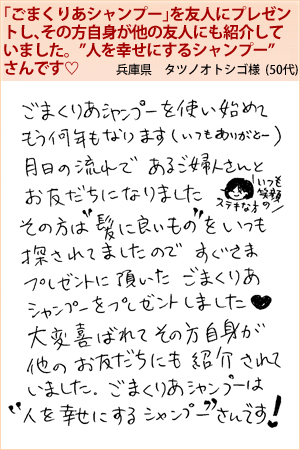 「ごまくりあシャンプー」を友人にプレゼン
トし、その方自身が他の友人にも紹介して
いました。”人を幸せにするシャンプー”
さんです♡
兵庫県 タツノオトシゴ様 (50代)
ごまくりあシャンプーを使い始めて
もう何年もなります(いつもありがとー)
月日の流れで あるご婦人さんと
お友だちになりました
いつも
笑顔の
ステキな方
その方は”髪に良いもの”をいつも
探されてましたので すぐさま
プレゼントに頂いた ごまくりあ
シャンプーをプレゼントしました♥
大変喜ばれて その方自身が
他の お友だちにも 紹介 されて
いました。ごまくりあシャンプーは
“人を幸せにする シャンプー”さんです!